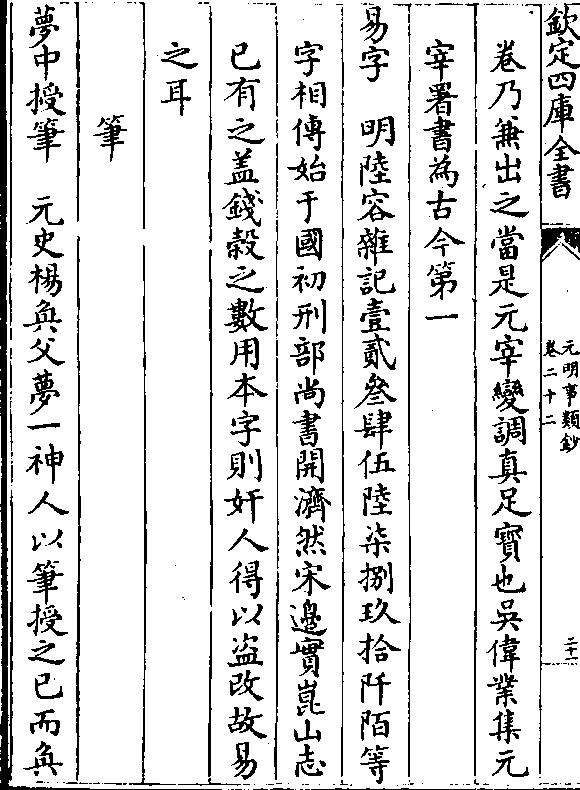 欽定四庫全書
元明事類鈔
卷二十二
二十一
卷乃兼出之當是元宰變調真足寶也吳偉業集元
宰署書為古今第一
易字　明陸容雜記壹貳叄肆伍陸柒捌玖拾阡陌等
字相傳始于國初刑部尚書開濟然宋邊實崑山志
已有之盖錢穀之數用本字則奸人得以盜改故易
之耳
筆
夢中授筆　元史楊奐父夢一神人以筆授之已而奐